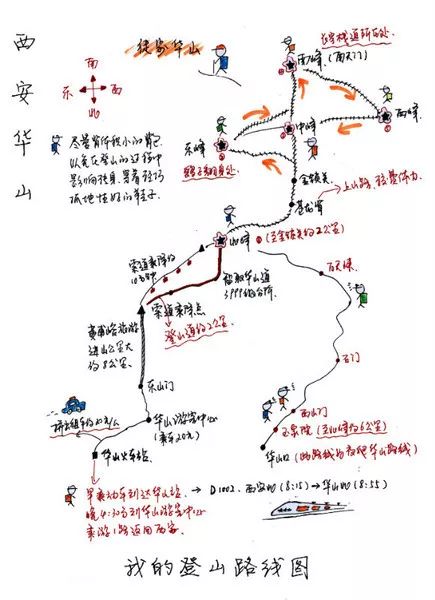 西安华山
南
东
西
北
续家华山
长空栈道所在处
南峰(南天门)
尽量背体积小的背包
以免在登山的过程中
影响独具,穿着轻巧
抓地性好的鞋子
西峰
中峰
东峰
鹞子翻身处
金锁关
苍龙岭
上山路,较费体力
北峰
(至金锁关约2公里)
索道乘降约
10分钟
智取华山道
3999级台阶
百尺峡
索道乘降点
登山道约2公里
黄甫峪旅游
进山公路大
约8公里
石门
东山门
西山门
玉泉院(至北峰约6公里)
华山游客中心
(乘车20元)
拼出租车约10元/人
华山火车站
华山口(此路线为夜爬华山路线)
早乘动车到达华山站
晚4:30分到华山游客中心
乘游1路返回西安
D1002 西安北(8:15)→华山北(8:55)
我的登山路线图